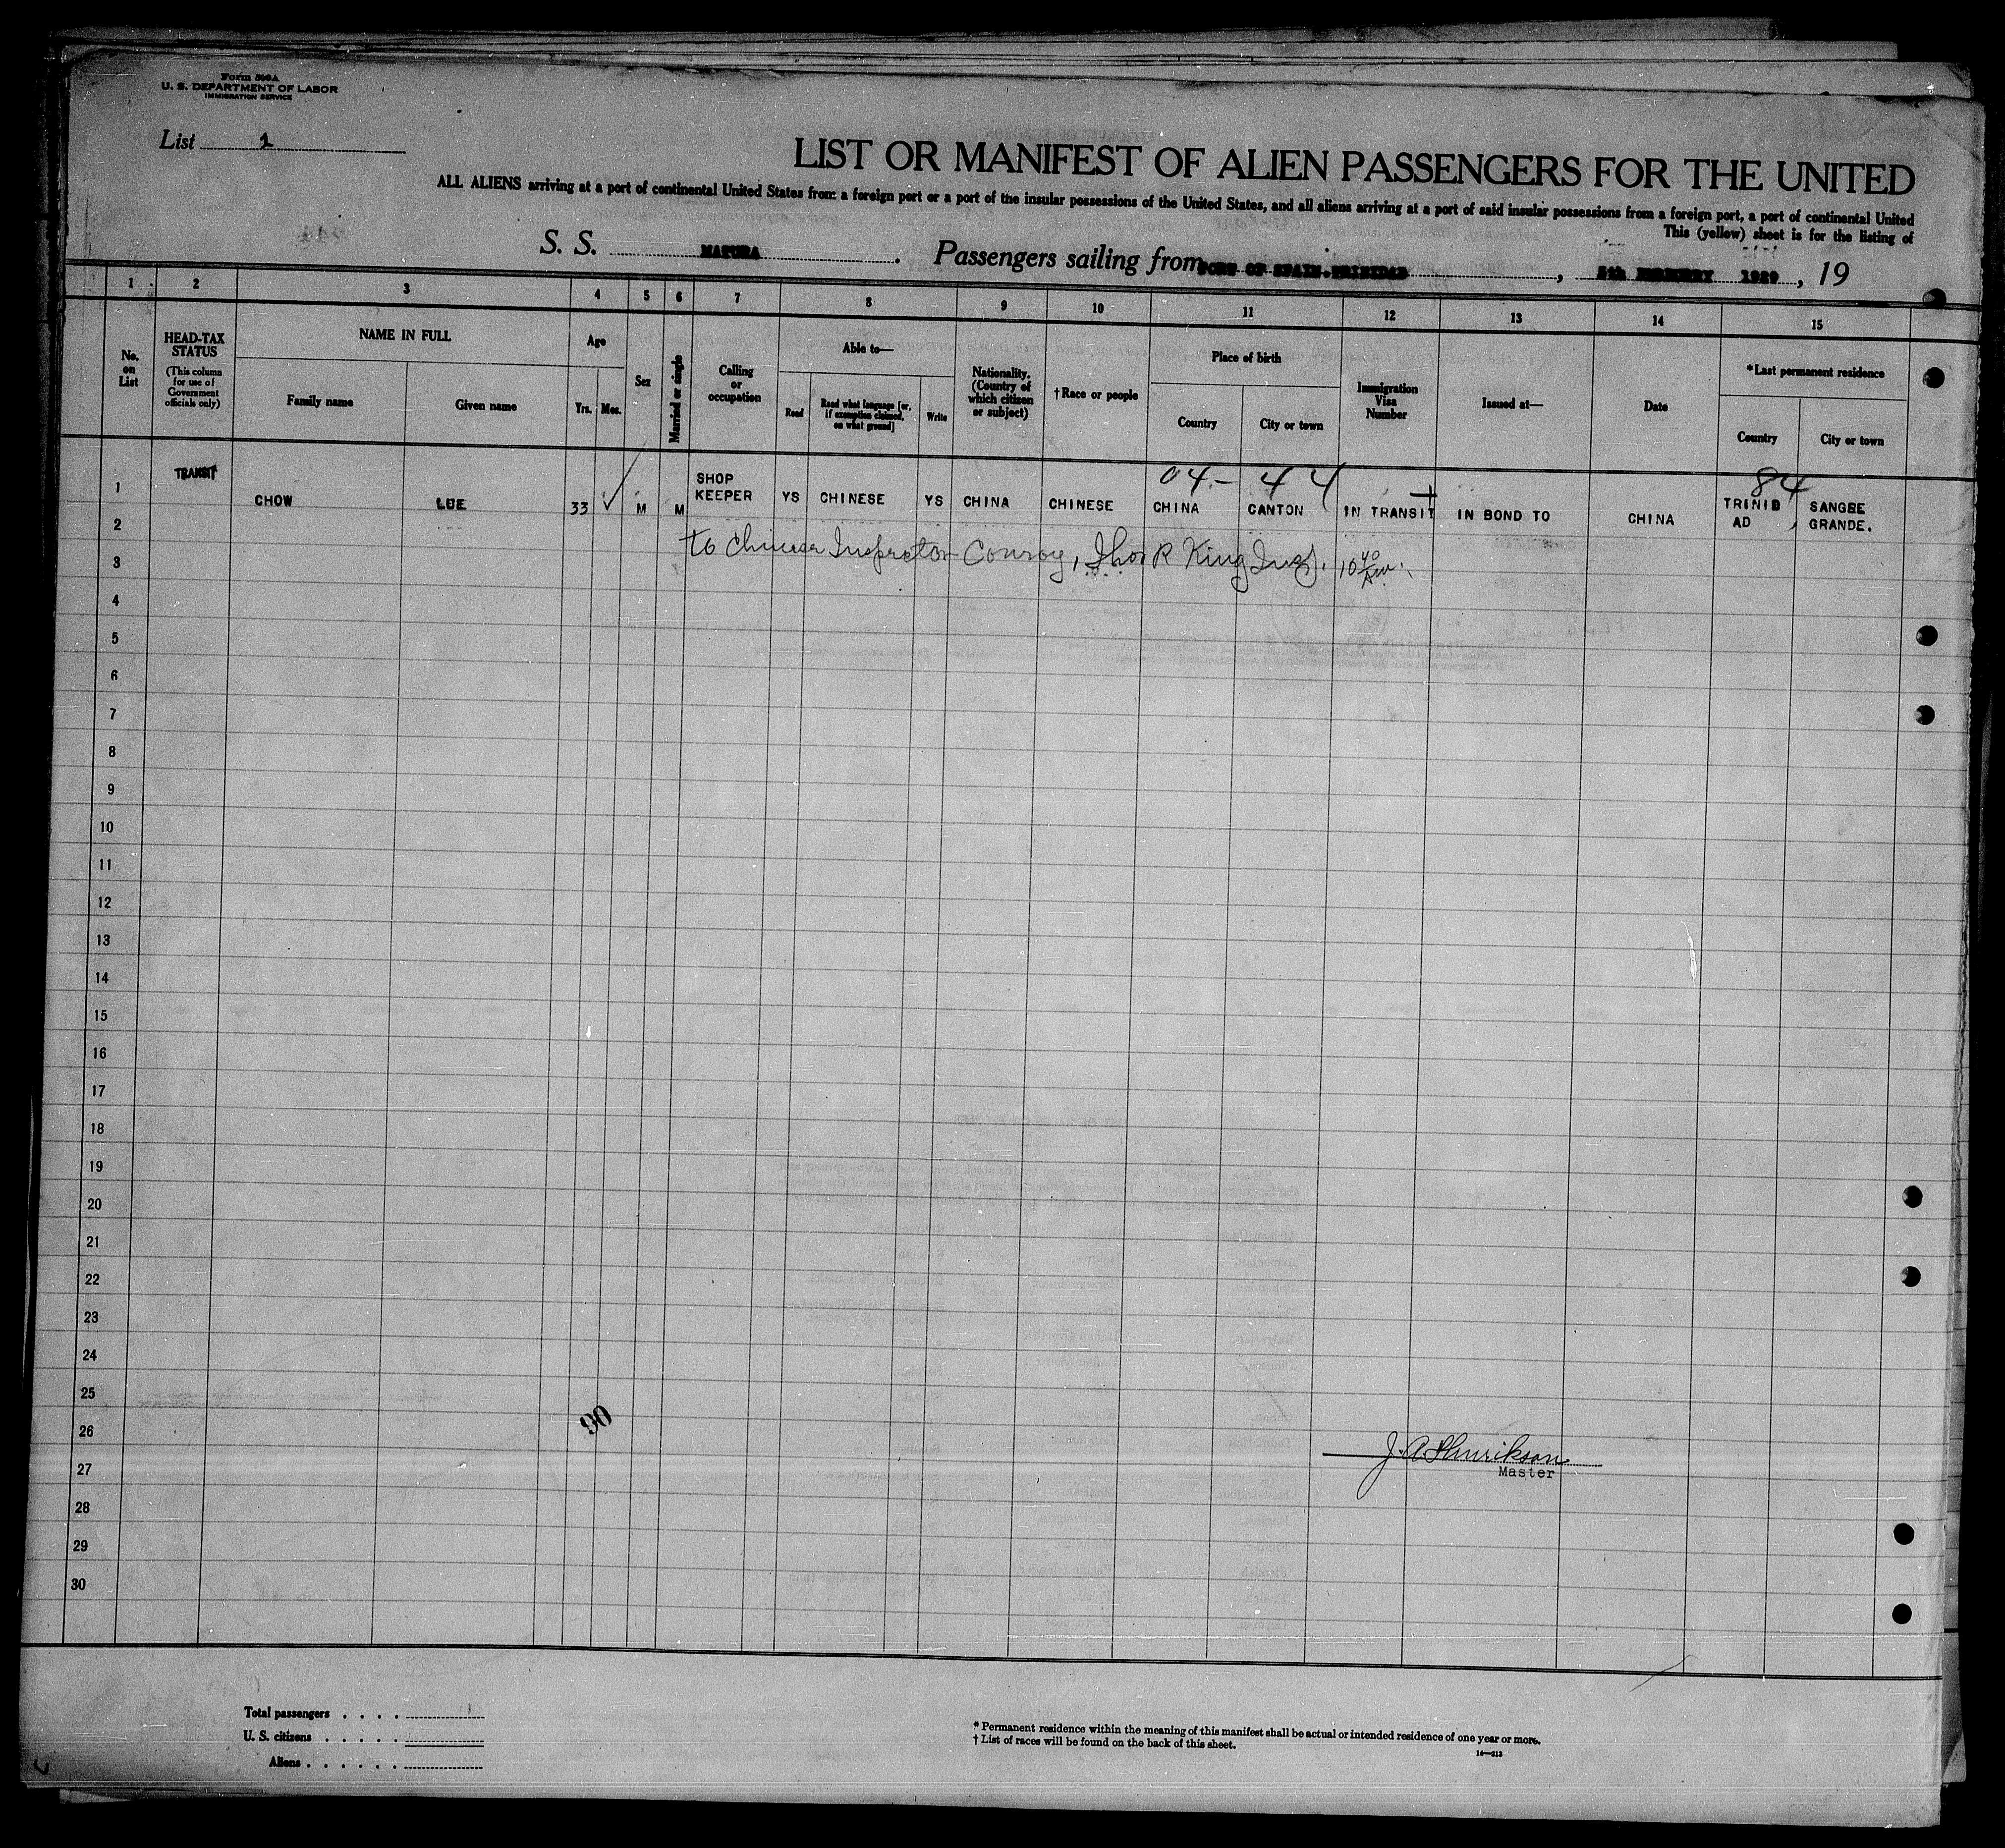 Form 500A
U. S. DEPARTMENT OF LABOR
IMMIGRATION SERVICE
List 1
LIST OR MANIFEST OF ALIEN PASSENGERS FOR THE UNITED
ALL ALIENS arriving at a port of continental United States from a foreign port or a port of the insular possessions of the United States, and all aliens arriving at a port of said insular possessions from a foreign port, a port of continental United
This (yellow) sheet is for the listing of
S. S. MATURA. Passengers sailing from PORT OF SPAIN. TRINIDAD, 1929, 19
1 2 3 4 5 6 7 8 9 10 11 12 13 14 15
No. on List
HEAD-TAX STATUS
(This column for use of Government officials only)
NAME IN FULL
Family name
Given name
Age
Yrs. Mos.
Sex
Married or single
Calling or occupation
Able to—
Read
Read what language [or, if exemption claimed, on what ground]
Write
Nationality. (Country of which citizen or subject)
†Race or people
Place of birth
Country
City or town
Immigration Visa Number
Issued at—
Date
*Last permanent residence
Country
City or town
04- 44 84
1 TRANSIT CHOW LUE 33 ✓ M M SHOP KEEPER YS CHINESE YS CHINA CHINESE CHINA CANTON IN TRANSIT IN BOND TO CHINA TRINIDAD, SANGRE GRANDE.
to Chinese Inspector Conroy, King Insp. 10 40
2
3
4
5
6
7
8
9
10
11
12
13
14
15
16
17
18
19
20
21
22
23
24
25
90
26
J. A. Henrikson
27
Master
28
29
30
Total passengers . . . .
U. S. citizens . . . . .
Aliens . . . . . .
* Permanent residence within the meaning of this manifest shall be actual or intended residence of one year or more.
† List of races will be found on the back of this sheet.
14—213